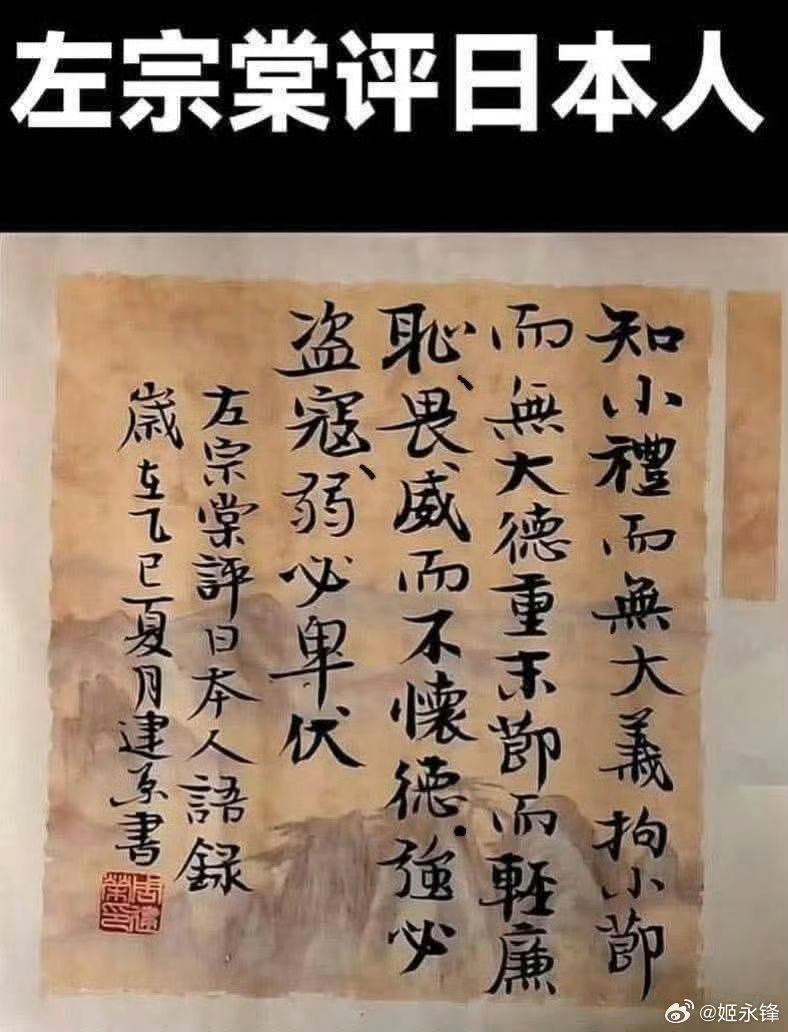 左宗棠评日本人
知小禮而無大義拘小節
而無大德重末節而輕廉
恥、畏威而不懷德.強必
盗寇、弱必卑伏
左宗棠評日本人語録
歲在乙巳夏月建榮書
@姬永锋